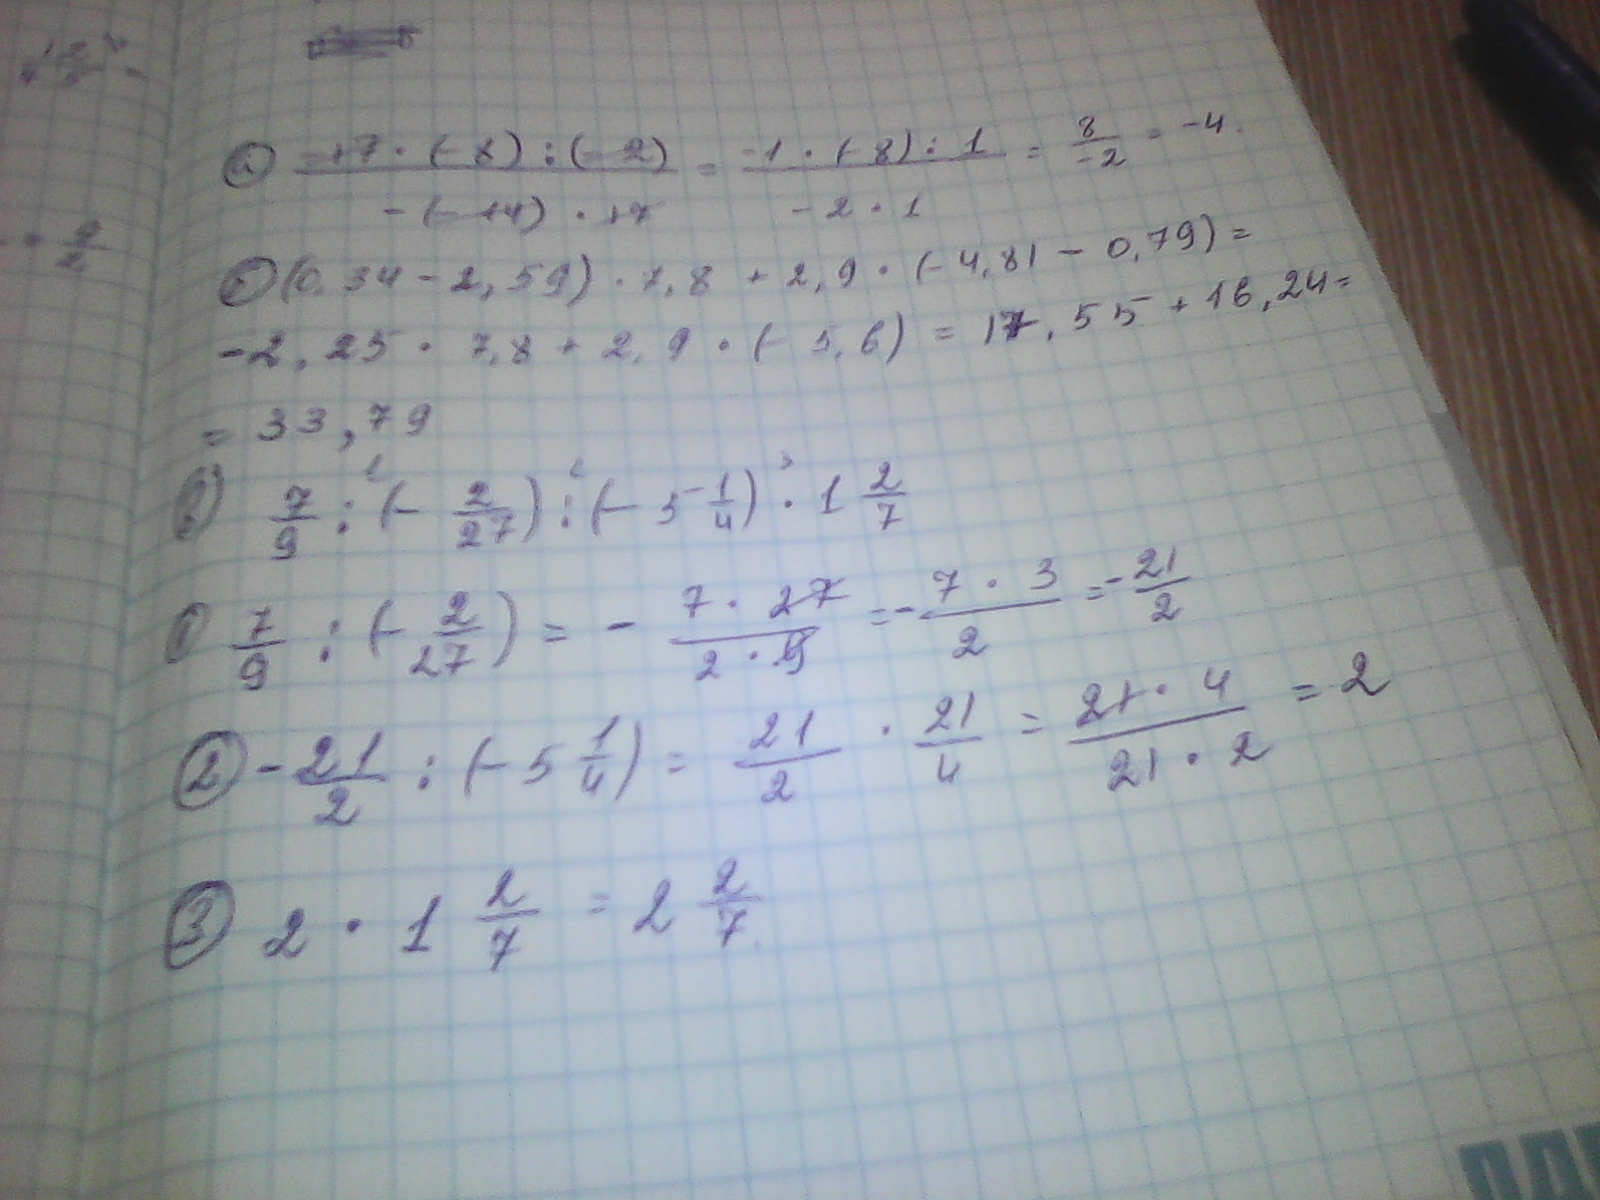 а) -17 · (-8) : (-2) / -(-14) · 17 = -1 · (-8) : 1 / -2 · 1 = 8/-2 = -4.
б) (0,34 - 2,59) · 7,8 + 2,9 · (-4,81 - 0,79) =
-2,25 · 7,8 + 2,9 · (-5,6) = 17,55 + 16,24 =
= 33,79
в) 7/9 : (- 2/27) : (- 5 1/4) · 1 2/7
1) 7/9 : (- 2/27) = - 7 · 27 / 2 · 9 = - 7 · 3 / 2 = - 21/2
2) - 21/2 : (- 5 1/4) = 21/2 · 21/4 = 21 · 4 / 21 · 2 = 2
3) 2 · 1 2/7 = 2 2/7.